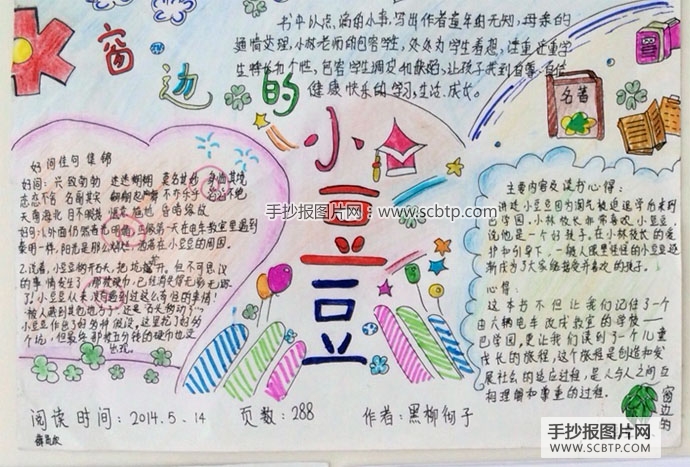 窗边的
小豆豆
书中以点滴的小事,写出作者童年的无知,母亲的
通情达理,小林老师的包容学生,处处为学生着想,注重注重学
生特长和个性,包容学生调皮和缺陷,让孩子找到自尊、自信
健康快乐的学习,生活,成长。
名著
好词佳句集锦
好词:兴致勃勃 迷迷糊糊 莫名其妙 身临其境
忐忑不安 名副其实 翩翩起舞 不亦乐乎
天南海北 目不眼
好句:1.外面仍然春光明媚,
桌明一样,阳光是那么灿烂,洒满在小豆豆的周围。
2.
的事情发生了,
了!小豆豆从来没有遇到过这么奇怪的事情!
小豆豆作出了好多种假设,这里挖了好多
个坑,但最终那被五分钟的硬币也没
出现。
主要内容及读书心得:
讲述小豆豆因为淘气被迫退学后来到
巴学园,小林校长非常喜欢小豆豆,
说他是一个好孩子。在小林校长的爱
护和引导下,一般人眼里怪怪的小豆豆逐
渐成为了大家能接受并喜欢的孩子。
心得:
这本书不但让我们记住了一个
由六辆电车改成教室的学校——
巴学园,更让我们读到了一个儿童
成长的旅程,这个旅程是创造和发
展社会的适应过程,是人与人之间互
相理解和尊重的过程。
窗边的
手抄报图片网:www.scbtp.com
阅读时间:2014.5.14 页数:288 作者:黑柳彻子
手抄报图片网
WWW.SCBTP.COM